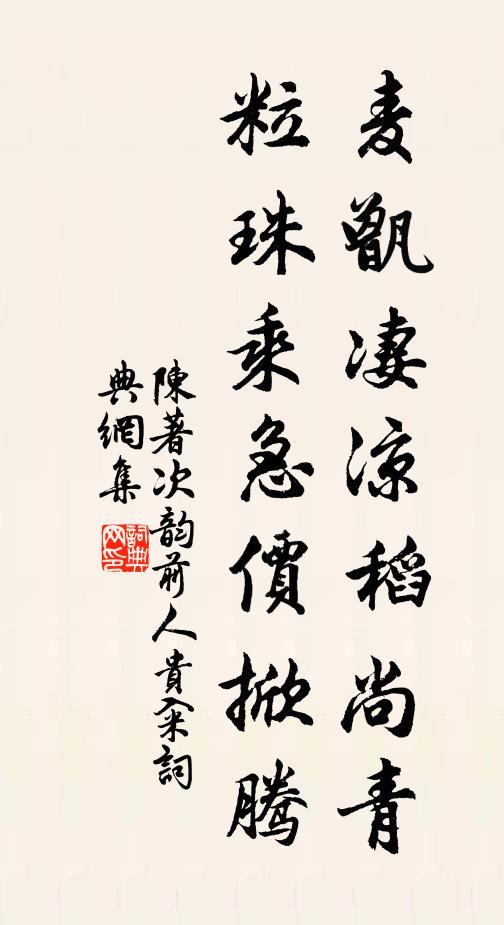 麦甑凄凉稻尚青
粒珠乘急價掀騰
陳著次韵前人貴籴詞
典網集
詞典
网印